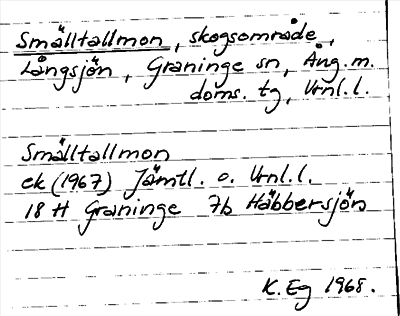 Smålltallmon, skogsområde,
Långsjön, Graninge sn, Ång. m.
doms. tg, Vrnl.l.
Smålltallmon
ek (1967) Jämtl. o. Vrnl.l.
18 H Graninge 7b Häbbersjön
K. Eg 1968.